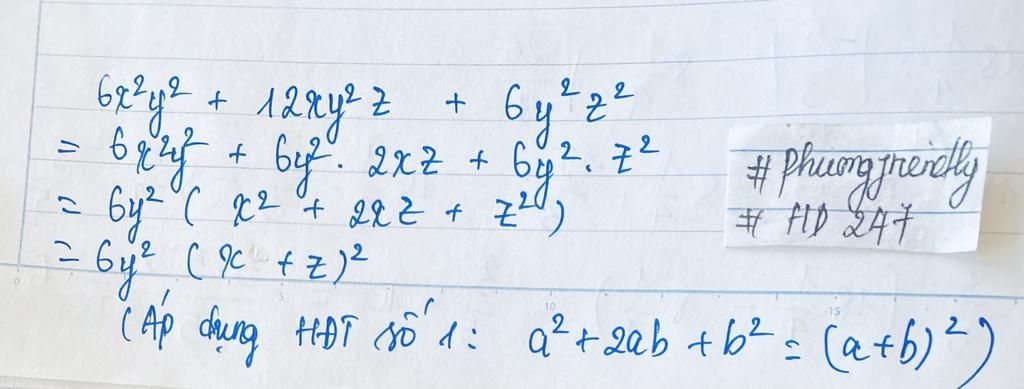 6x²y² + 12xy²z + 6y²z²
= 6x²y² + 6y². 2xz + 6y². z²
= 6y² ( x² + 2xz + z² )
= 6y² ( x + z )²
(Áp dụng HĐT số 1: a² + 2ab + b² = (a+b)²)
# phuongfriendly
# HD 247